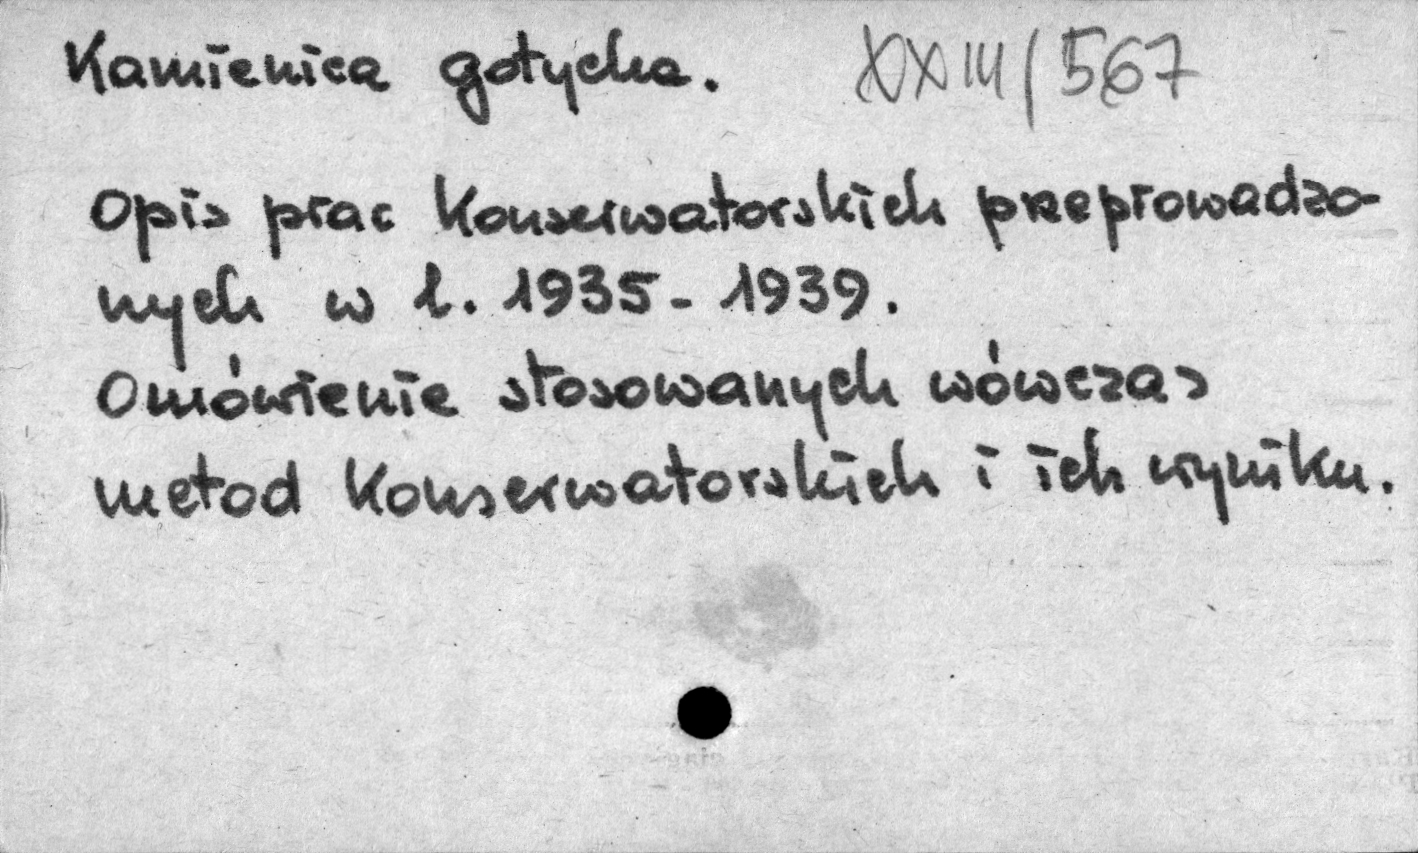 Kamienica gotycka. XXIII/567
Opis prac konserwatorskich przeprowadzo-
nych w l. 1935-1939.
Omówienie stosowanych wówczas
metod konserwatorskich i ich wyniku.